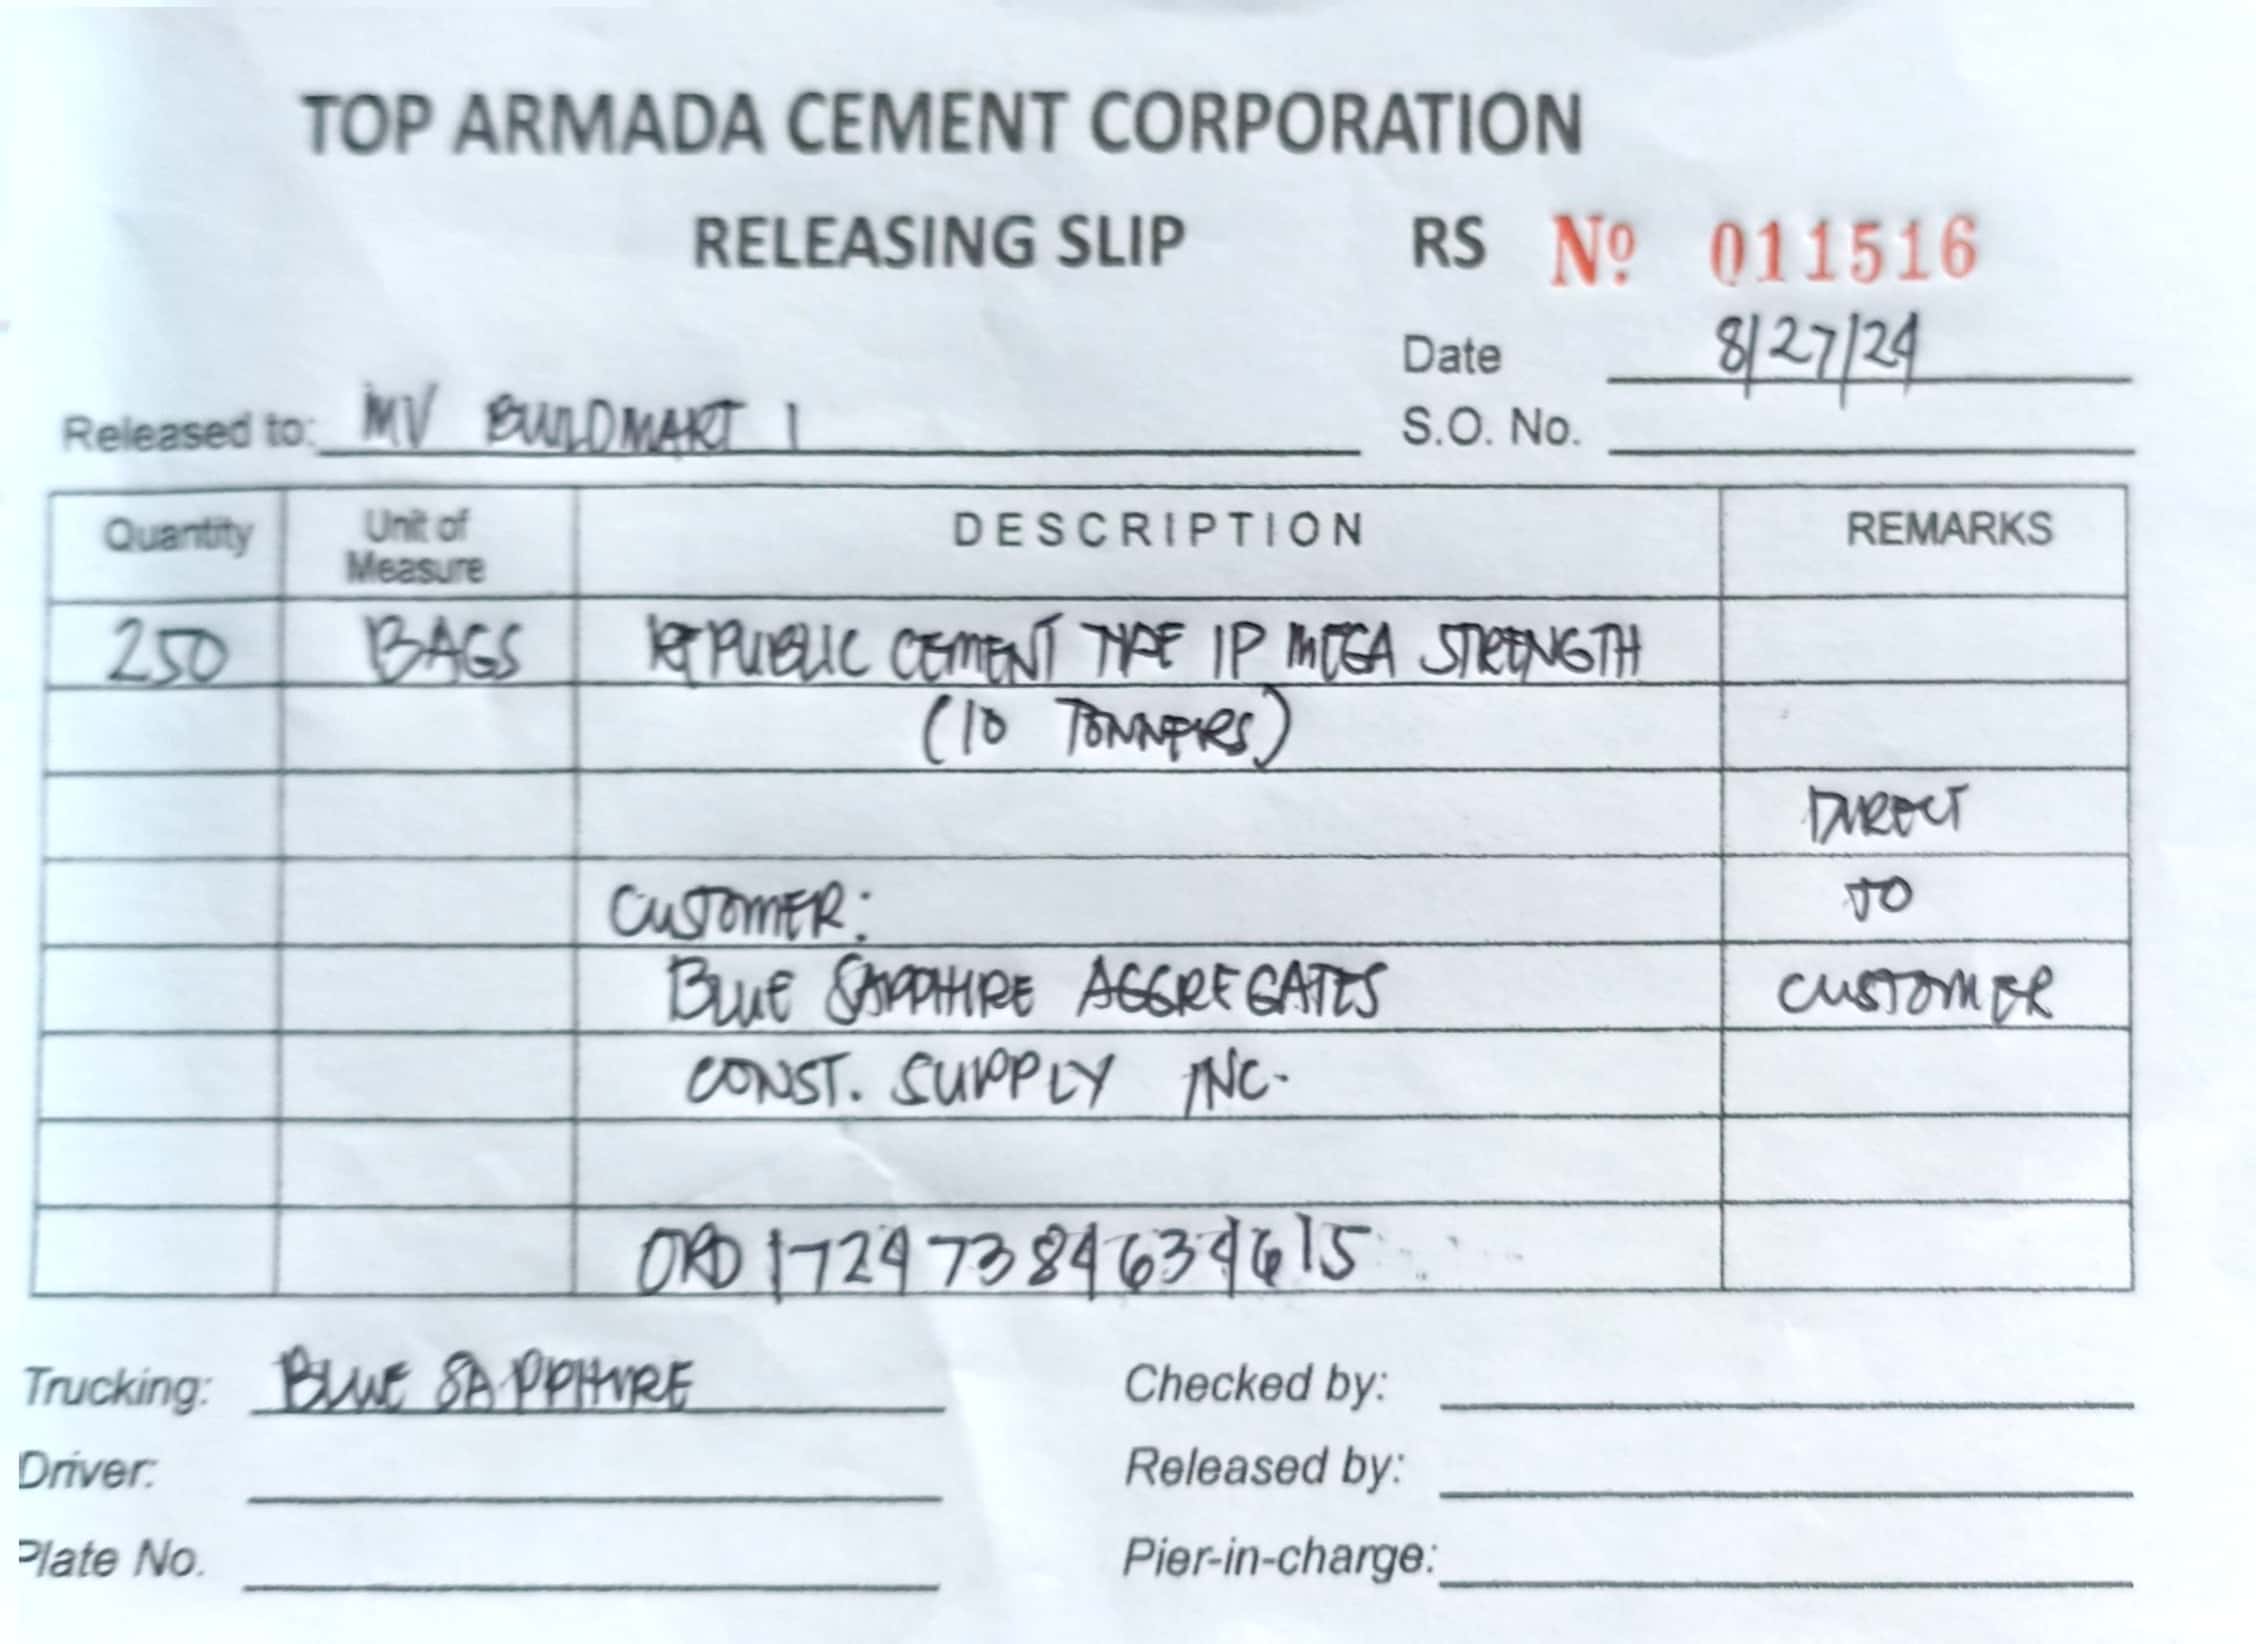 TOP ARMADA CEMENT CORPORATION
RELEASING SLIP RS Nº 011516
Date 8/27/24
Released to: MV BUILDMART 1
S.O. No.
Quantity Unit of Measure DESCRIPTION REMARKS
250 BAGS REPUBLIC CEMENT TYPE 1P MEGA STRENGTH
(10 TONNERS)
DIRECT
CUSTOMER: TO
BLUE SAPPHIRE AGGREGATES CUSTOMER
CONST. SUPPLY INC.
ORD 17247384634615
Trucking: BLUE SAPPHIRE Checked by:
Driver: Released by:
Plate No. Pier-in-charge: